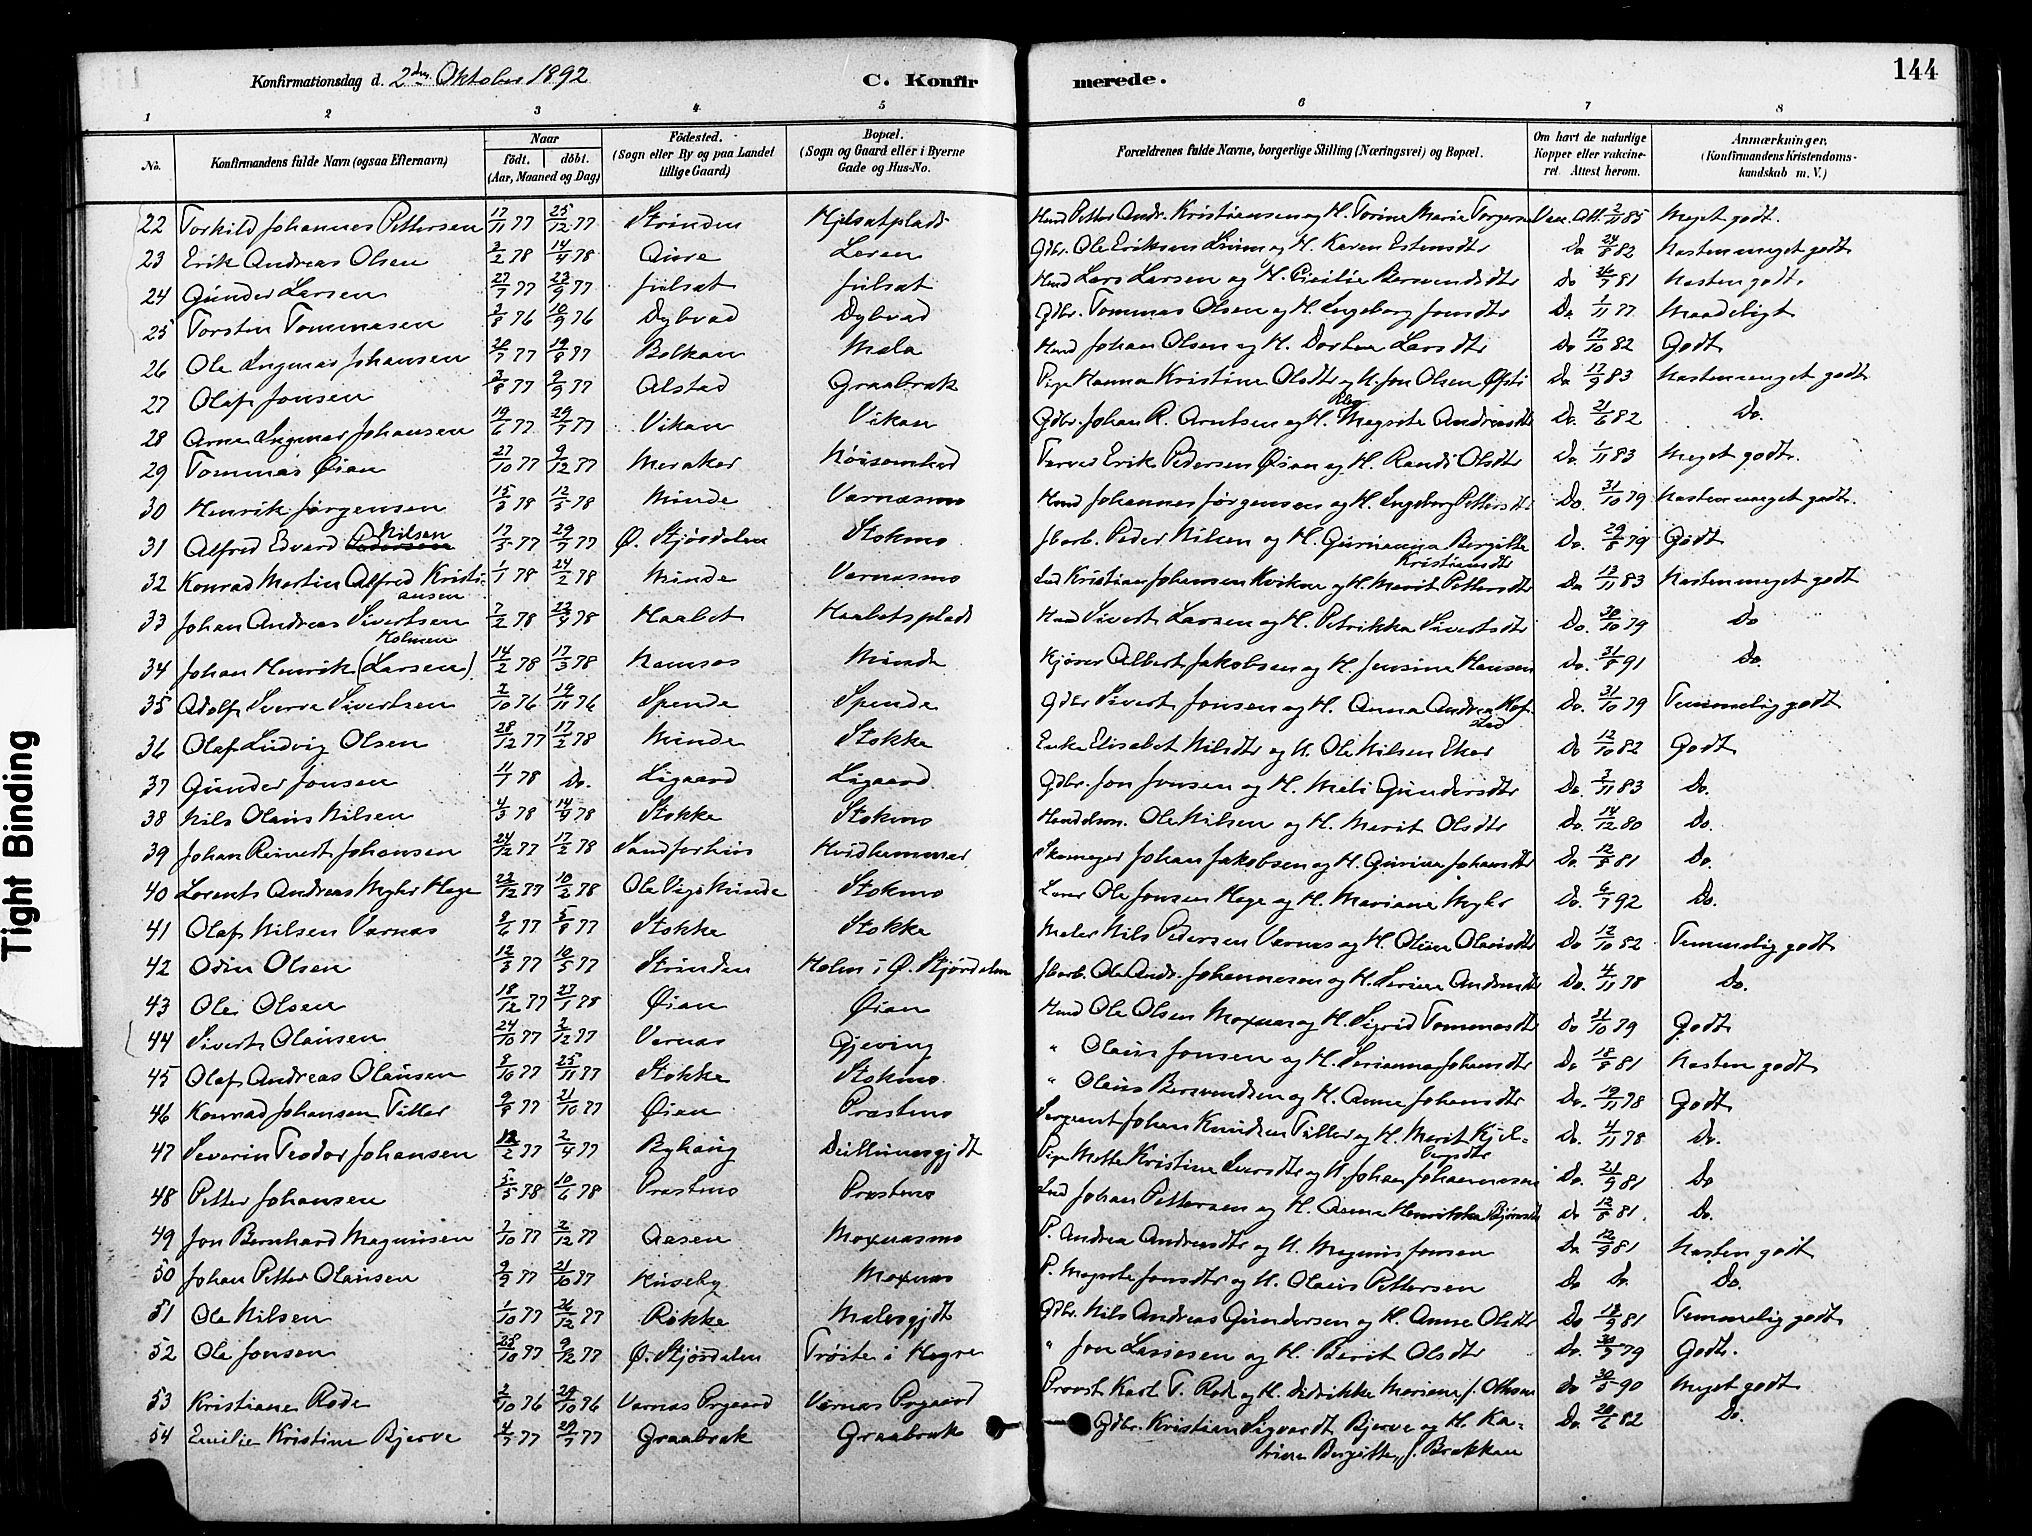 144
Konfirmationsdag d. 2den Oktober 1892 C. Konfirmerede.
1 2 3 4 5 6 7 8
No. Konfirmandens fulde Navn (ogsaa Efternavn) Naar födt. döbt. (Aar, Maaned og Dag) Födested. (Sogn eller By og paa Landet tillige Gaard) Bopæl. (Sogn og Gaard eller i Byerne Gade og Hus-No. Forældrenes fulde Navne, borgerlige Stilling (Næringsvei) og Bopæl. Om havt de naturlige Kopper eller vakcineret. Attest herom. Anmærkninger. (Konfirmandens Kristendomskundskab m. V.)
22 Torkild Johannes Pettersen 17/11 77 25/12 77 Strinden Hjelsatplads Hmd Petter Andr. Kristiansen og H. Torine Marie Torgersen Vac. Att. 2/11 85 Meget godt.
23 Erik Andreas Olsen 3/2 78 14/4 78 Aure Leren Gdbr. Ole Eriksen Leren og H. Karen Estensdtr Do 24/8 82 Næsten meget godt
24 Gunder Larsen 27/7 77 23/9 77 Julsat Julsat Hmd Lars Larsen og H. Cicilie Bersvendsdtr Do 26/7 81 Næsten godt.
25 Torsten Tommasen 3/8 76 10/9 76 Dybvad Dybvad Gdbr. Tommas Olsen og H. Ingeborg Jonsdtr Do 1/11 77 Maadeligt
26 Ole Ingmar Johansen 20/7 77 19/8 77 Balkan Mæla Hmd Johan Olsen og H. Dorthea Larsdtr Do 17/10 82 Godt
27 Olaf Jonsen 3/8 77 9/9 77 Alstad Graabræk Pige Hanna Kristine Olsdtr og U. Jon Olsen Øfsti Do 17/9 83 Næsten meget godt
28 Arne Ingmar Johansen 19/6 77 29/7 77 Vikan Vikan Gdbr. Johan R. Arntsen og H. Eleo Megrete Andreasdtr Do. 21/6 82 Do.
29 Tommas Øian 27/10 77 9/12 77 Meraker Nöisomhed Farver Erik Pedersen Øian og H. Randi Olsdtr Do. 1/11 83 Meget godt.
30 Henrik Jørgensen 15/3 78 12/5 78 Minde Værnæsmo Hmd Johannes Jørgensen og H. Ingeborg Pettersdtr Do. 31/10 79 Næsten meget godt.
31 Alfred Edvard Pedersen Nilsen 17/5 77 29/7 77 Ø. Stjørdalen Stokmo Jbarb. Peder Nilsen og H. Gurianna Bergitte Kristiansdtr Do. 29/8 79 Godt
32 Konrad Martin Alfred Kristiansen 1/1 78 24/2 78 Minde Værnæsmo Ind Kristian Johansen Kvikne og H. Marit Pettersdtr Do 13/11 83 Næsten meget godt
33 Johan Andreas Sivertsen 7/2 78 22/4 78 Haabet Haabetsplads Hmd Sivert Larsen og H. Petrikka Sivertsdtr Do. 30/10 79 Do
34 Johan Henrik (Larsen) Holmen 14/2 78 17/3 78 Namsos Minde Kjører Albert Jakobsen og H. Jensine Hansen Do. 31/8 91 Do.
35 Adolf Sverre Sivertsen 2/10 76 19/11 76 Spende Spende Gdbr Sivert Jonsen og H. Anna Andrea Hofstad Do. 31/10 79 Temmelig godt
36 Olaf Ludvig Olsen 28/12 77 17/2 78 Minde Stokke Enke Elisabet Nilsdtr og U. Ole Nilsen Eker Do 12/10 82 Godt
37 Gunder Jonsen 11/1 78 Do. Ligaard Ligaard Gdbr. Jon Jonsen og H. Meli Gundersdtr Do. 3/11 83 Do.
38 Nils Olaus Nilsen 4/3 78 14/4 78 Stokke Stokmo Handelsm. Ole Nilsen og H. Marit Olsdtr Do. 14/12 80 Do.
39 Johan Reinert Johansen 24/12 77 17/2 78 Sandferhus Hvidhammer Skomager Johan Jakobsen og H. Gurine Johansdtr Do. 12/8 81 Do.
40 Lorents Andreas Myhr Hege 23/12 77 10/2 78 Ole Vigs Minde Stokmo Lærer Ole Jonsen Hege og H. Mariane Myhr Do. 6/7 92 Do.
41 Olaf Nilsen Værnæs 9/6 77 5/8 77 Stokke Stokke Maler Nils Pedersen Værnæs og H. Oline Olausdtr Do 12/10 82 Temmelig godt
42 Odin Olsen 12/3 77 10/5 77 Strinden Holm i Ø. Stjørdalen Jbarb. Ole Andr. Johannesen og H. Serine Andersdtr Do. 4/11 78 Do.
43 Ole Olsen 18/12 77 27/1 78 Øian Øian Hmd Ole Olsen Moxnes og H. Sigrid Tommasdtr Do 31/10 79 Godt
44 Sivert Olausen 24/10 77 2/12 77 Værnæs Gjeving " Olaus Jonsen og H. Serianna Johansdtr Do 18/8 81 Næsten godt
45 Olaf Andreas Olausen 8/10 77 25/11 77 Stokke Stokmo. " Olaus Bersvendsen og H. Anne Johansdtr Do. 19/11 78 Godt
46 Konrad Johansen Tiller 9/8 77 21/10 77 Øian Præstmo Sergeant Johan Knudsen Tiller og H. Marit Kjelbergsdtr Do. 4/11 78 Do.
47 Severin Teodor Johansen 12/2 77 2/4 77 Byhaug Pige Mette Kristine Iversdtr og U. Johan Johannessen Do. 21/9 81 Do
48 Petter Johansen 5/5 78 10/6 78 Præstmo Præstmo Ind Johan Pettersen og H. Anne Henrikka Bjørnsdtr Do 12/8 81. Do.
49 Jon Bernhard Magnusen 2/10 77 2/12 77 Aasen Moxnæsmo P. Andrea Andreasdtr og U. Magnus Jonsen Do 12/9 81 Næsten godt
50 Johan Petter Olausen 9/9 77 21/10 77 Huseby Moxnæs P. Magrete Jonsdtr og U. Olaus Pettersen Do Do. Do.
51 Ole Nilsen 1/10 77 26/12 77 Røkke Gdbr. Nils Andreas Gundersen og H. Anne Olsdtr Do 13/9 81 Temmelig godt
52 Ole Jonsen 28/10 77 9/12 77 Ø. Stjørdalen Trøite i Hegre " Jon Lassesen og H. Berit Olsdtr Do. 30/9 79 Godt.
53 Kristiane Rode 2/10 76 29/10 76 Værnæs Prgaard Værnæs Prgaard Provst Karl T. Rode og H. Didrikke Mariane f. Do 30/5 90 Meget godt
54 Emilie Kristine Bjerve 4/7 77 29/7 77 Graabræk Graabræk Gdbr. Kristian Sigvardt Bjerve og H. Katrine Bergitte, f. Brækkan Do. 20/6 82 Do.
Tight Binding